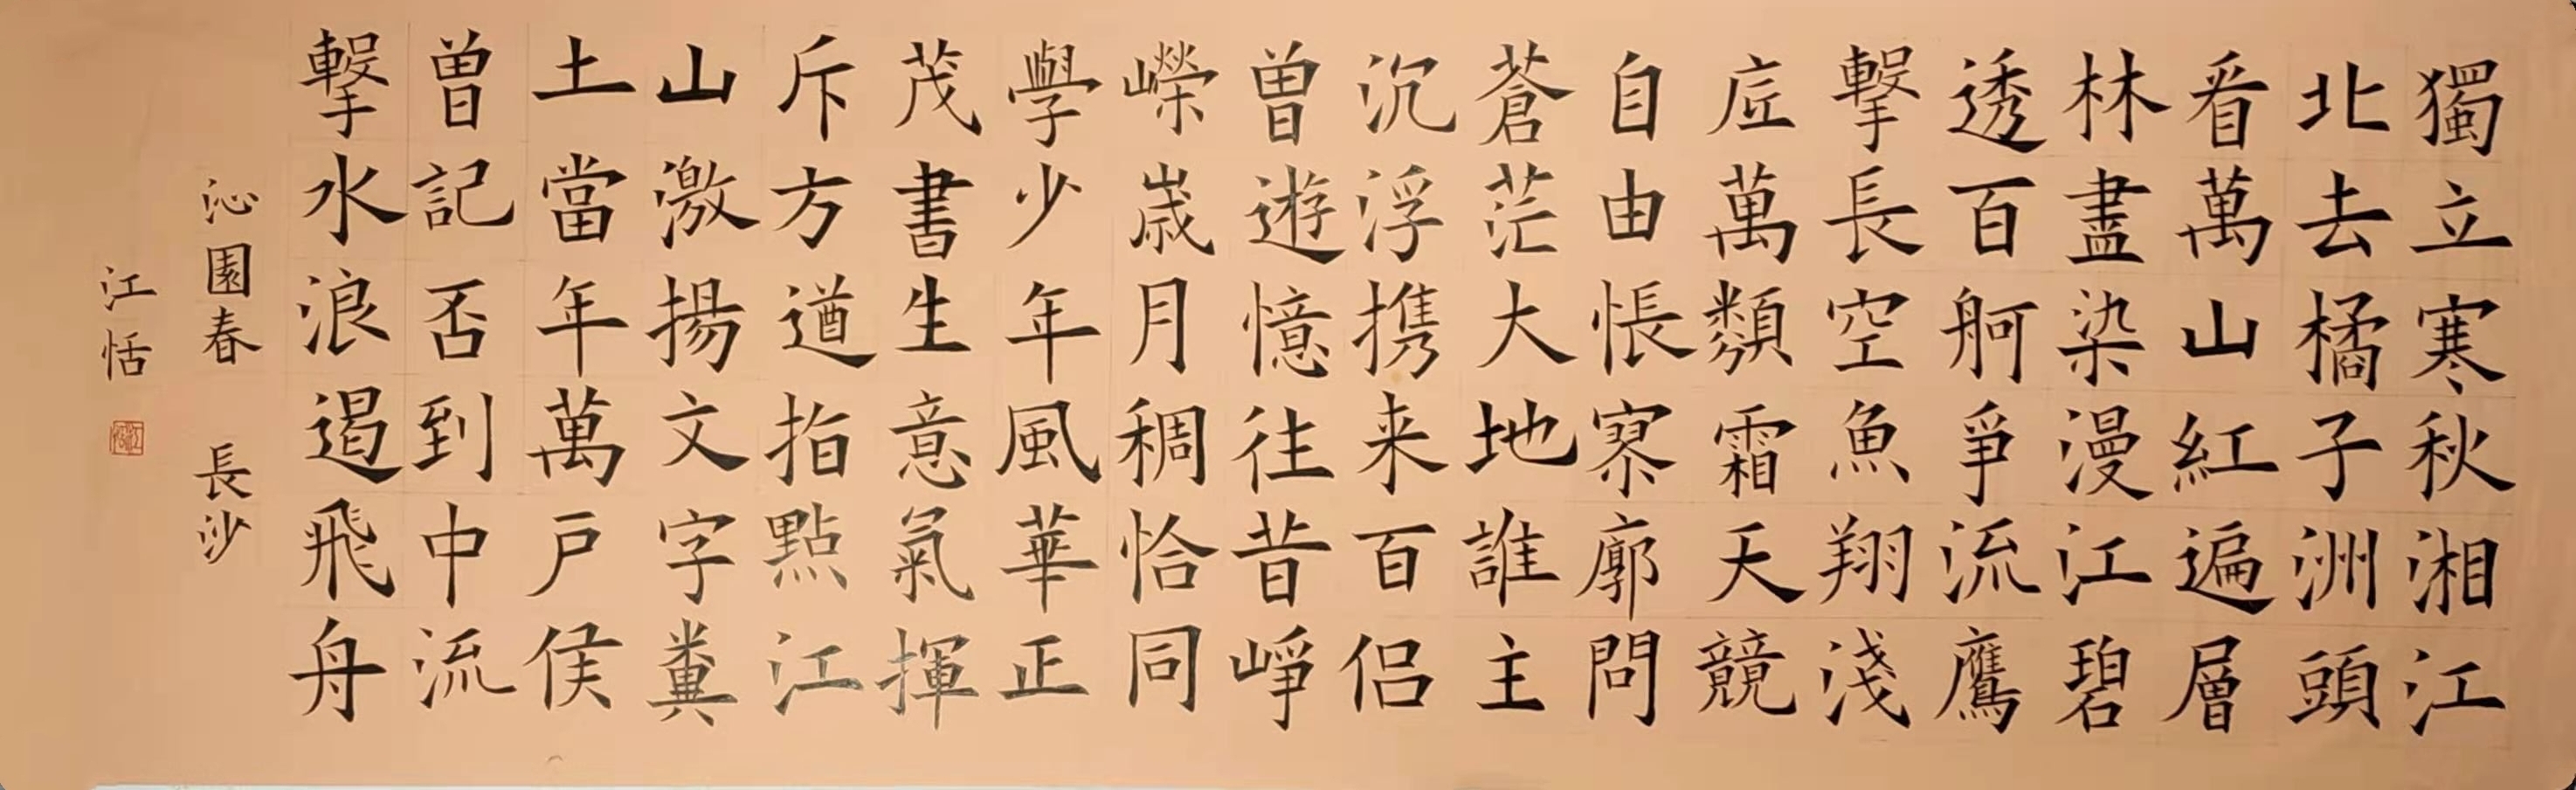 獨立寒秋湘江
北去橘子洲頭
看萬山紅遍層
林盡染漫江碧
透百舸爭流鷹
擊長空魚翔淺
底萬類霜天競
自由悵寥廓問
蒼茫大地誰主
沉浮携来百侶
曾遊憶往昔崢
嶸歲月稠恰同
學少年風華正
茂書生意氣揮
斥方遒指點江
山激揚文字糞
土當年萬戶侯
曾記否到中流
擊水浪遏飛舟
沁園春 長沙
江恬